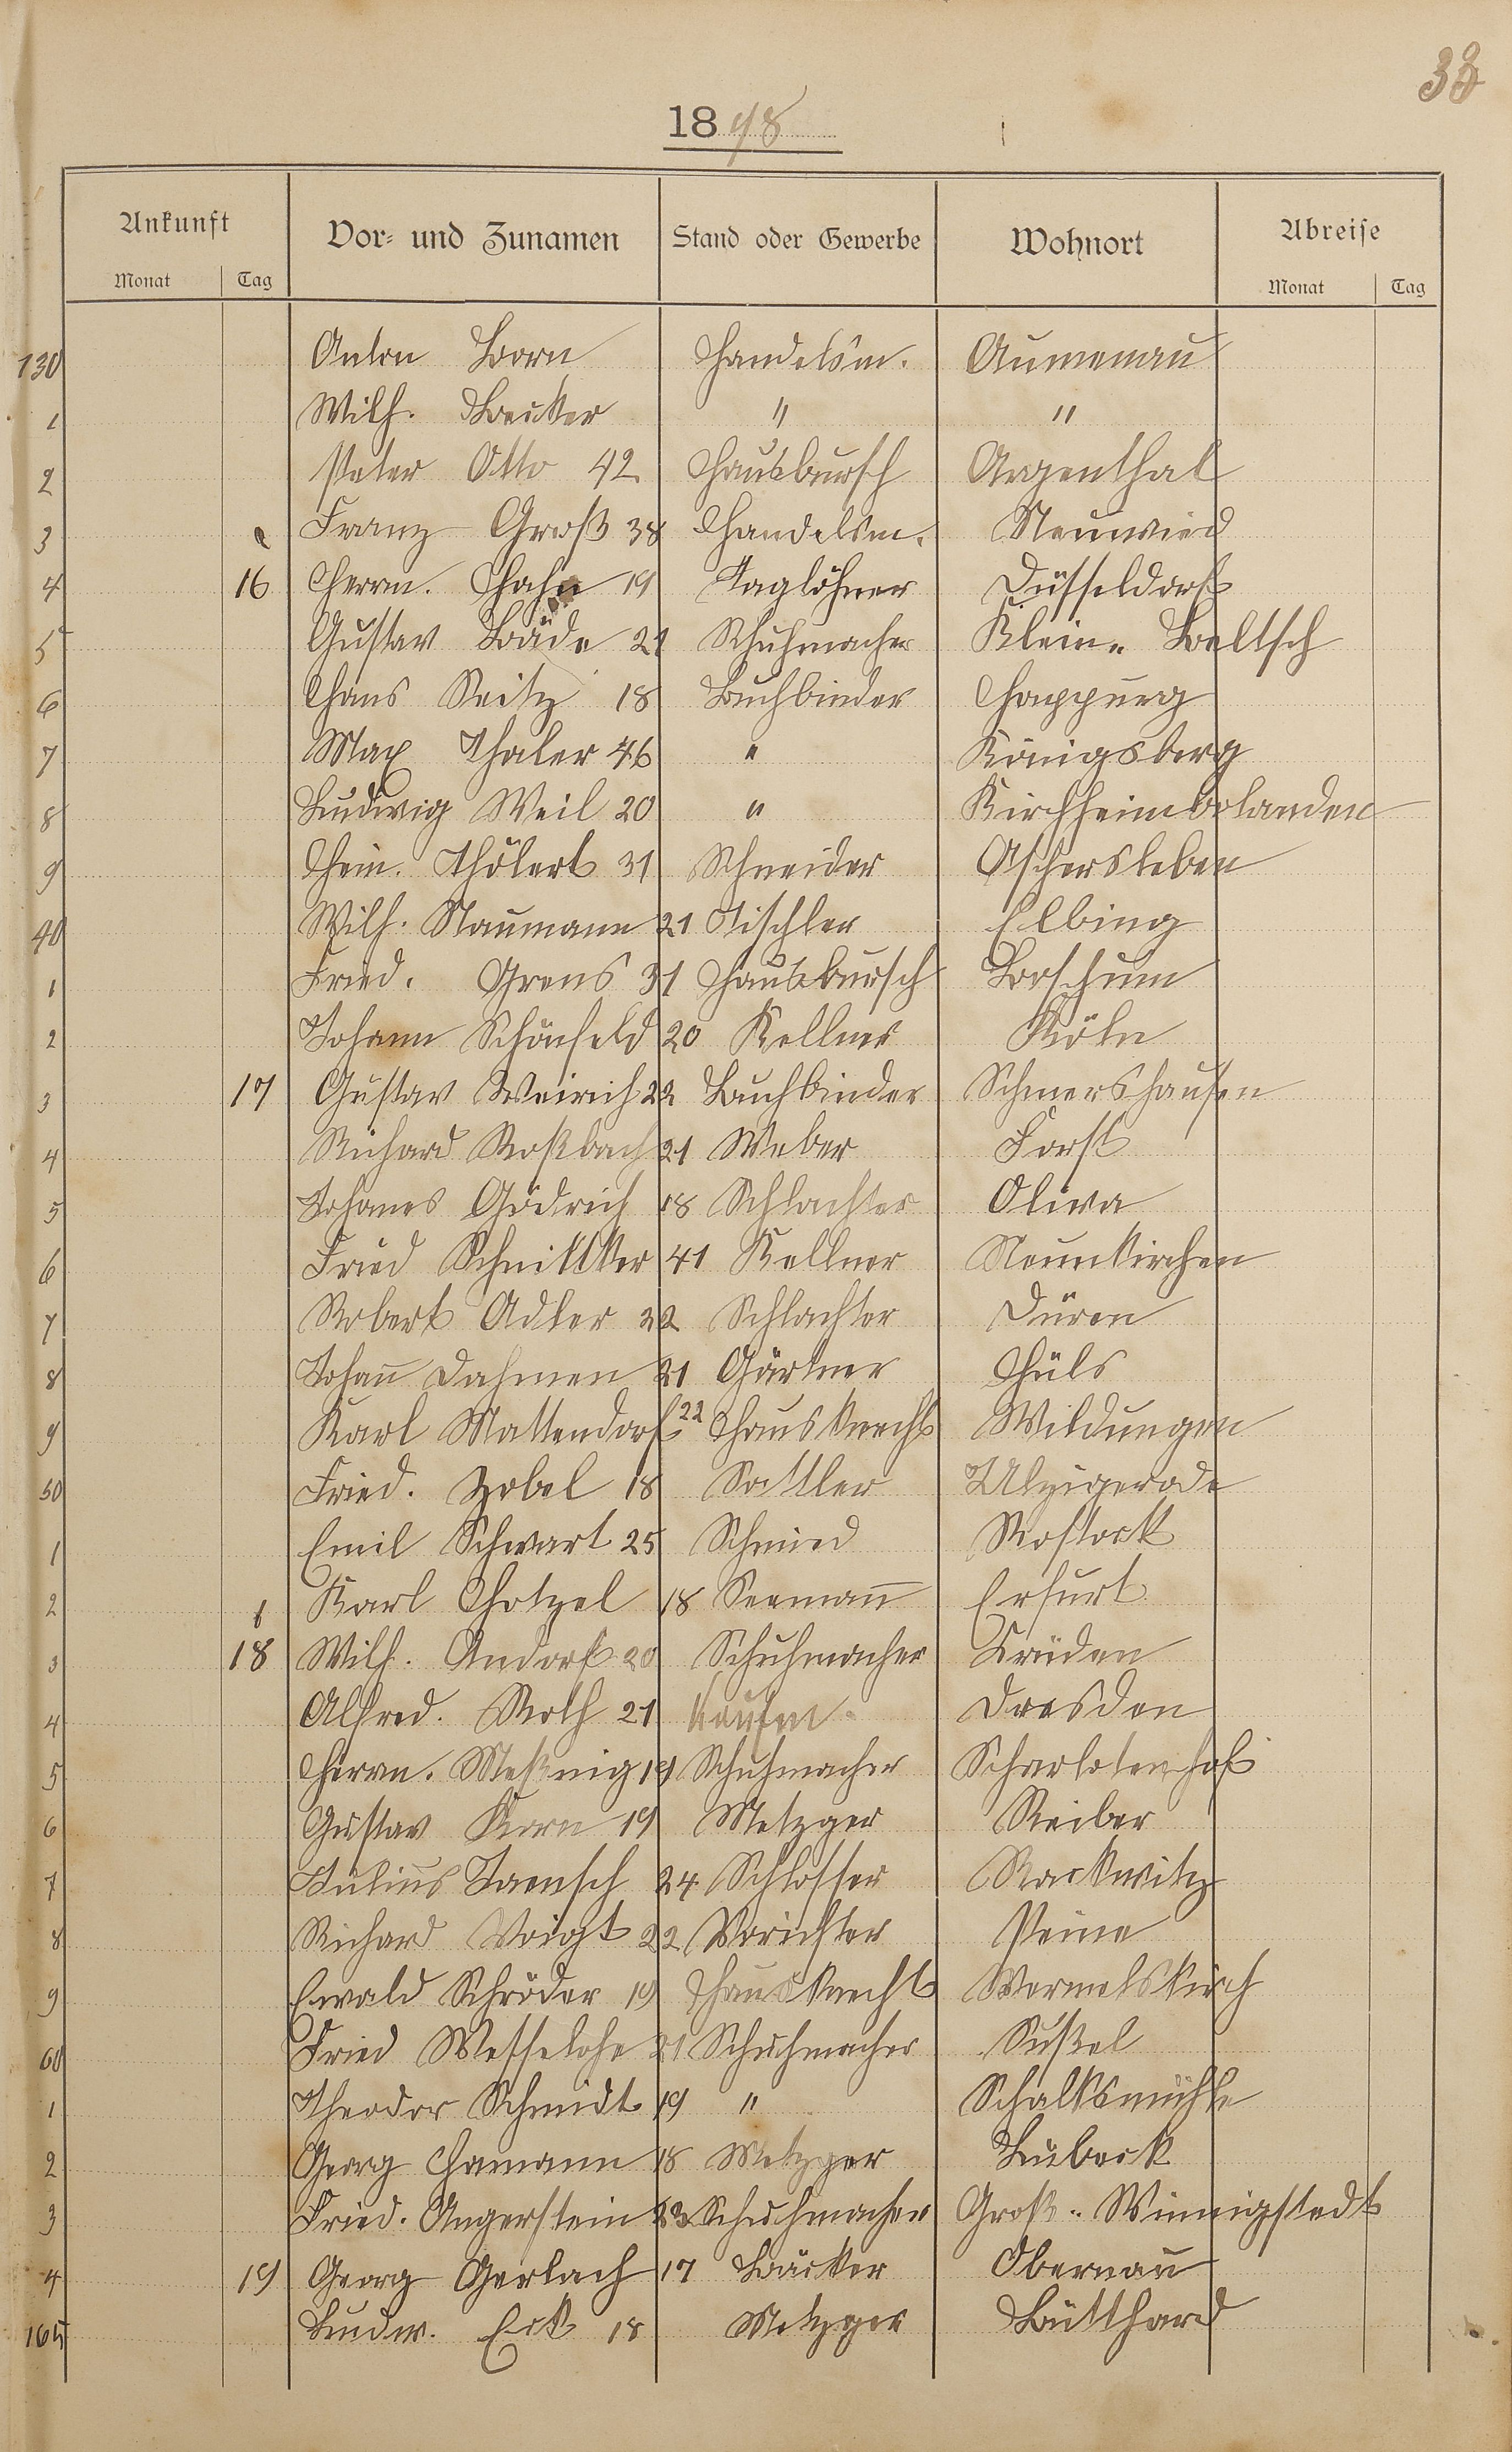 33
1898
Ankunft Vor- und Zunamen Stand oder Gewerbe Wohnort Abreise
Monat Tag Monat Tag
130 Anton Born Handelsm. Aumenau
1 Wilh. Becker " "
2 Peter Otto 42 Hausbursch Argenthal
3 Franz Groß 38 Handelsm. Neuwied
4 16 Herm. Hahn 19 Taglöhner Düsseldorf
5 Gustav Bäde 21 Schuhmacher Klein- Beltsch
6 Hans Seitz 18 Buchbinder Happurg
7 Max Thaler 46 " Königsberg
8 Ludwig Weil 20 " Kirchheimbolanden
9 Hein. Thölert 31 Schneider Aschersleben
40 Wilh. Naumann 21 Tischler Elbing
1 Fried. Grens 31 Hausbursch Borschum
2 Johann Schönfeld 20 Kellner Köln
3 17 Gustav Weirich 22 Buchbinder Schmershausen
4 Richard Roßbach 21 Weber Forst
5 Johanes Gödrich 18 Schlachter Oliva
6 Fried Schnittker 41 Kellner Neunkirchen
7 Robert Adler 32 Schlachter Düren
8 Johan̄ Dahmen 21 Gärtner Hüls
9 Karl Mattendorf 22 Hausknecht Wildungen
50 Fried. Zobel 18 Sattler Ulzigerode
1 Emil Schwart 25 Schmied Rostock
2 Karl Hotzel 18 Seeman̄ Erfurt
3 18 Wilh. Andorf 20 Schuhmacher Krüden
4 Alfred. Roth 21 Kaufm. Dresden
5 Herm. Meßnig 19 Schuhmacher Scharlotenhof
6 Gustav Korn 19 Metzger Reiber
7 Julius Jaensch 24 Schlosser Rackwitz
8 Richard Voigt 22 Vorichter Peine
9 Ewald Schröder 19 Hausknecht Wermelskirch
60 Fried Messelohe 21 Schuhmacher Sußel
1 Theodor Schmidt 19 " Schalksmühle
2 Georg Hamann 18 Metzger Lubeck
3 Fried. Angerstein 23 Schuhmacher Groß- Winnigstedt
4 19 Georg Gerlach 17 Bäcker Obernau
165 Ludw. Eck 18 Metzger Bütthard